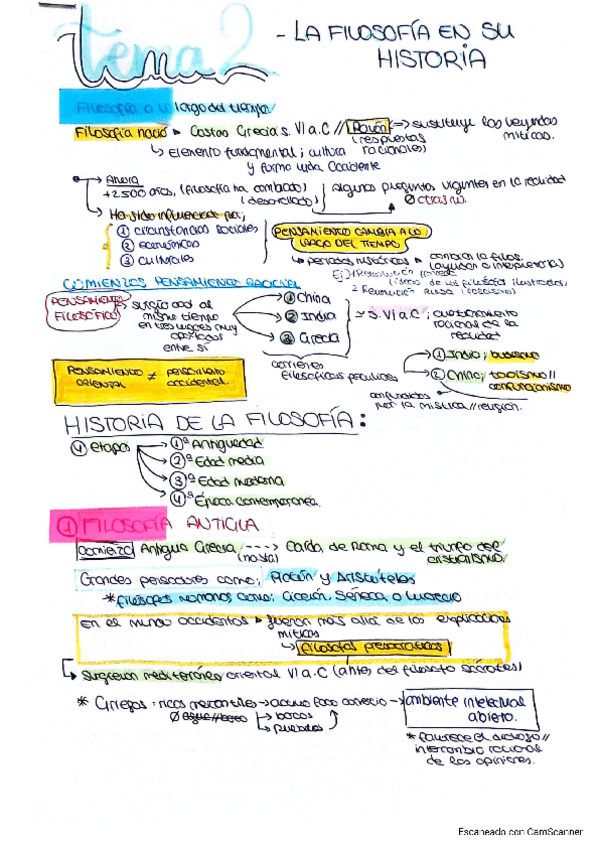 tema 2 - LA FILOSOFÍA EN SU
HISTORIA
Filosofía a lo largo del tiempo
Filosofía nació Costas Grecia s. VI a.C // Razón => sustituye las leyendas
(respuestas racionales) míticas.
↳ Elemento fundamental; cultura
y forma vida Occidente
→ Ahora
+2500 años, (filosofía ha cambiado) Algunas preguntas vigentes en la realidad
(desarrollado) Ø otras no.
→ Ha sido influenciada por;
① circunstancias sociales
② económicas
③ culturales
PENSAMIENTO CAMBIA A LO
LARGO DEL TIEMPO
↳ periodos históricos
COMIENZOS PENSAMIENTO RACIONAL
PENSAMIENTO
FILOSÓFICO
surgió casi al
mismo tiempo
en tres lugares muy
alejados
entre sí
① China
② India
③ Grecia
s. VI a.C;
racional de la
realidad
corrientes
filosóficas peculiares
① India; budismo
② China; taoísmo //
confucionismo
por la mística // religión.
PENSAMIENTO ≠ PENSAMIENTO
ORIENTAL OCCIDENTAL.
HISTORIA DE LA FILOSOFÍA:
④ etapas
1ª Antigüedad
2ª Edad media
3ª Edad moderna
4ª Época contemporánea.
① FILOSOFÍA ANTIGUA
Comienzo Antigua Grecia ----> Caída de Roma y el triunfo del
(hasta) cristianismo
Grandes pensadores como; Platón y Aristóteles
* filósofos romanos como; Cicerón, Séneca o Lucrecio
En el mundo occidental fueron más allá de las explicaciones
míticas
↳ filósofos presocráticos
↳ Surgieron mediterráneo oriental VI a.C (antes del filósofo Sócrates)
* Griegos: ricos mercantiles → activo foco comercio → ambiente intelectual
abierto.
↳ barcos
↳ pueblos
* favorece el diálogo //
intercambio racional
de las opiniones.
Escaneado con CamScanner